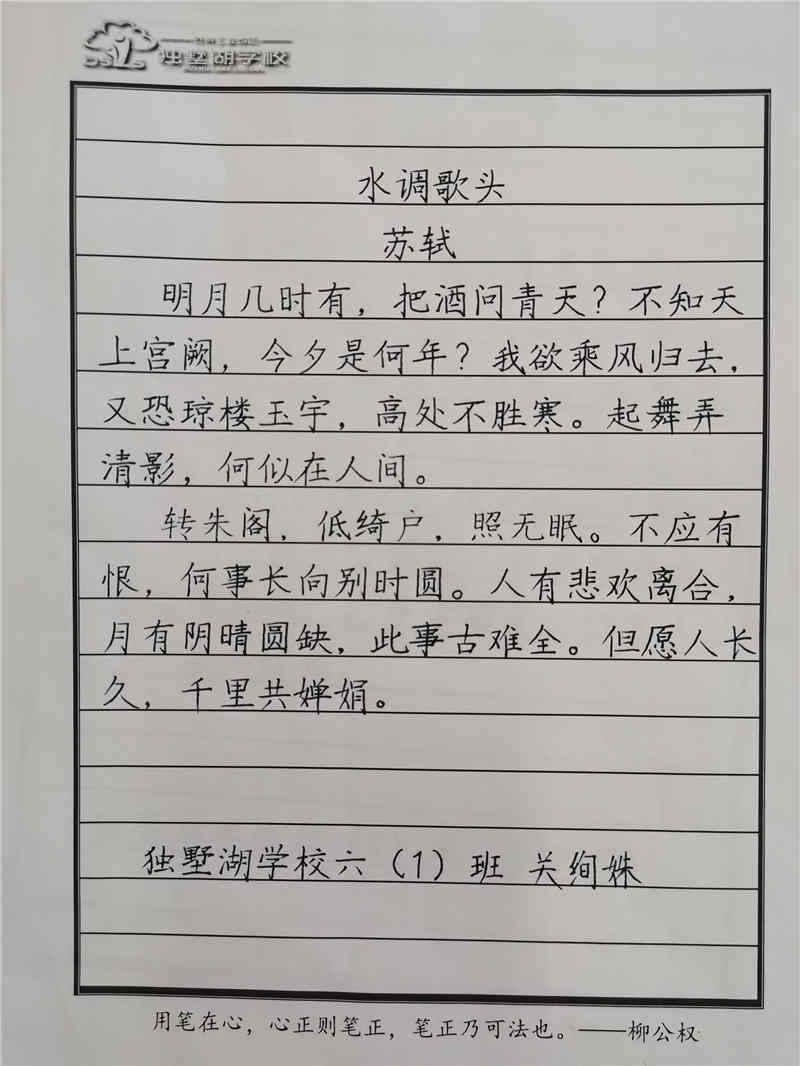 独墅湖学校
水调歌头
苏轼
明月几时有，把酒问青天？不知天
上宫阙，今夕是何年？我欲乘风归去，
又恐琼楼玉宇，高处不胜寒。起舞弄
清影，何似在人间。
转朱阁，低绮户，照无眠。不应有
恨，何事长向别时圆。人有悲欢离合，
月有阴晴圆缺，此事古难全。但愿人长
久，千里共婵娟。
独墅湖学校六（1）班 关绚姝
用笔在心，心正则笔正，笔正乃可法也。——柳公权